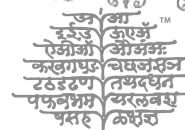 अ आ ™
इ ई उ ऊ ए अॅ
ऐ ओ औ ऑ अं अः
क ख ग घ ङ च छ ज झ ञ
ट ठ ड ढ ण त थ द ध न
प फ ब भ म य र ल व श
ष स ह ळ क्ष ज्ञ